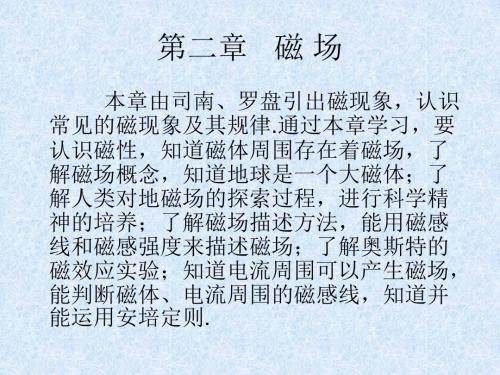 第二章 磁 场
本章由司南、罗盘引出磁现象，认识
常见的磁现象及其规律.通过本章学习，要
认识磁性，知道磁体周围存在着磁场，了
解磁场概念，知道地球是一个大磁体；了
解人类对地磁场的探索过程，进行科学精
神的培养；了解磁场描述方法，能用磁感
线和磁感强度来描述磁场；了解奥斯特的
磁效应实验；知道电流周围可以产生磁场，
能判断磁体、电流周围的磁感线，知道并
能运用安培定则.